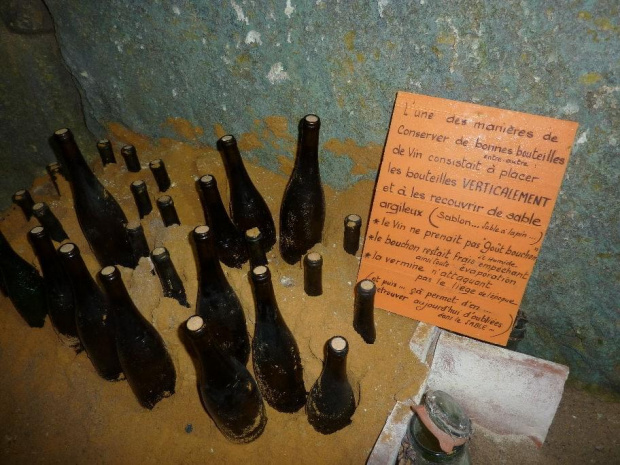 L'une des manières de
Conserver de bonnes bouteilles
entre-autre !
de Vin consistait à placer
les bouteilles VERTICALEMENT
et à les recouvrir de sable
argileux (Sablon... Sable à lapin...)
* le Vin ne prenait pas "goût bouchon
* le bouchon restait frais et humide empêchant
ainsi toute évaporation
* la vermine n'attaquant
pas le liège de l'époque
(et puis... çà permet d'en...
retrouver aujourd'hui d'oubliées
dans le SABLE -)